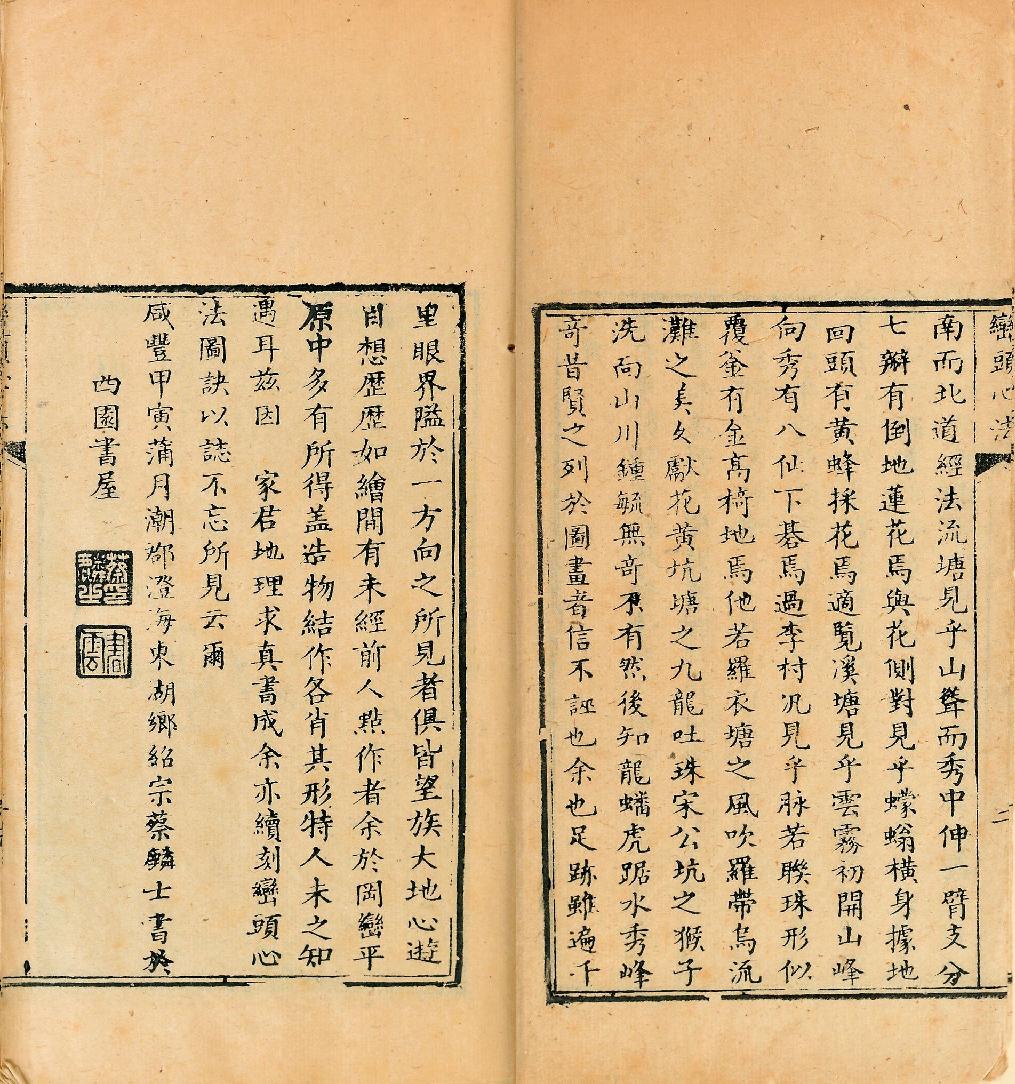 巒頭心法
二
南而北道經法流塘見乎山聳而秀中伸一臂支分
七瓣有倒地蓮花焉與花側對見乎蠓螉橫身據地
回頭有黃蜂採花焉適覽溪塘見乎雲霧初開山峰
向秀有八仙下碁焉過李村汎見乎脉若聯珠形似
覆釜有金高椅地焉他若羅衣塘之風吹羅帶烏流
灘之美女獻花黃坑塘之九龍吐珠宋公坑之猴子
洗面山川鍾毓無奇不有然後知龍蟠虎踞水秀峰
奇昔賢之列於圖畫者信不誣也余也足跡雖遍千
里眼界隘於一方向之所見者俱皆望族大地心遊
目想歷歷如繪間有未經前人點作者余於岡巒平
原中多有所得盖造物結作各肖其形特人未之知
遇耳兹因　家君地理求真書成余亦續刻巒頭心
法圖訣以誌不忘所見云爾
咸豐甲寅蒲月潮郡澄海東湖鄉紹宗蔡麟士書於
西園書屋